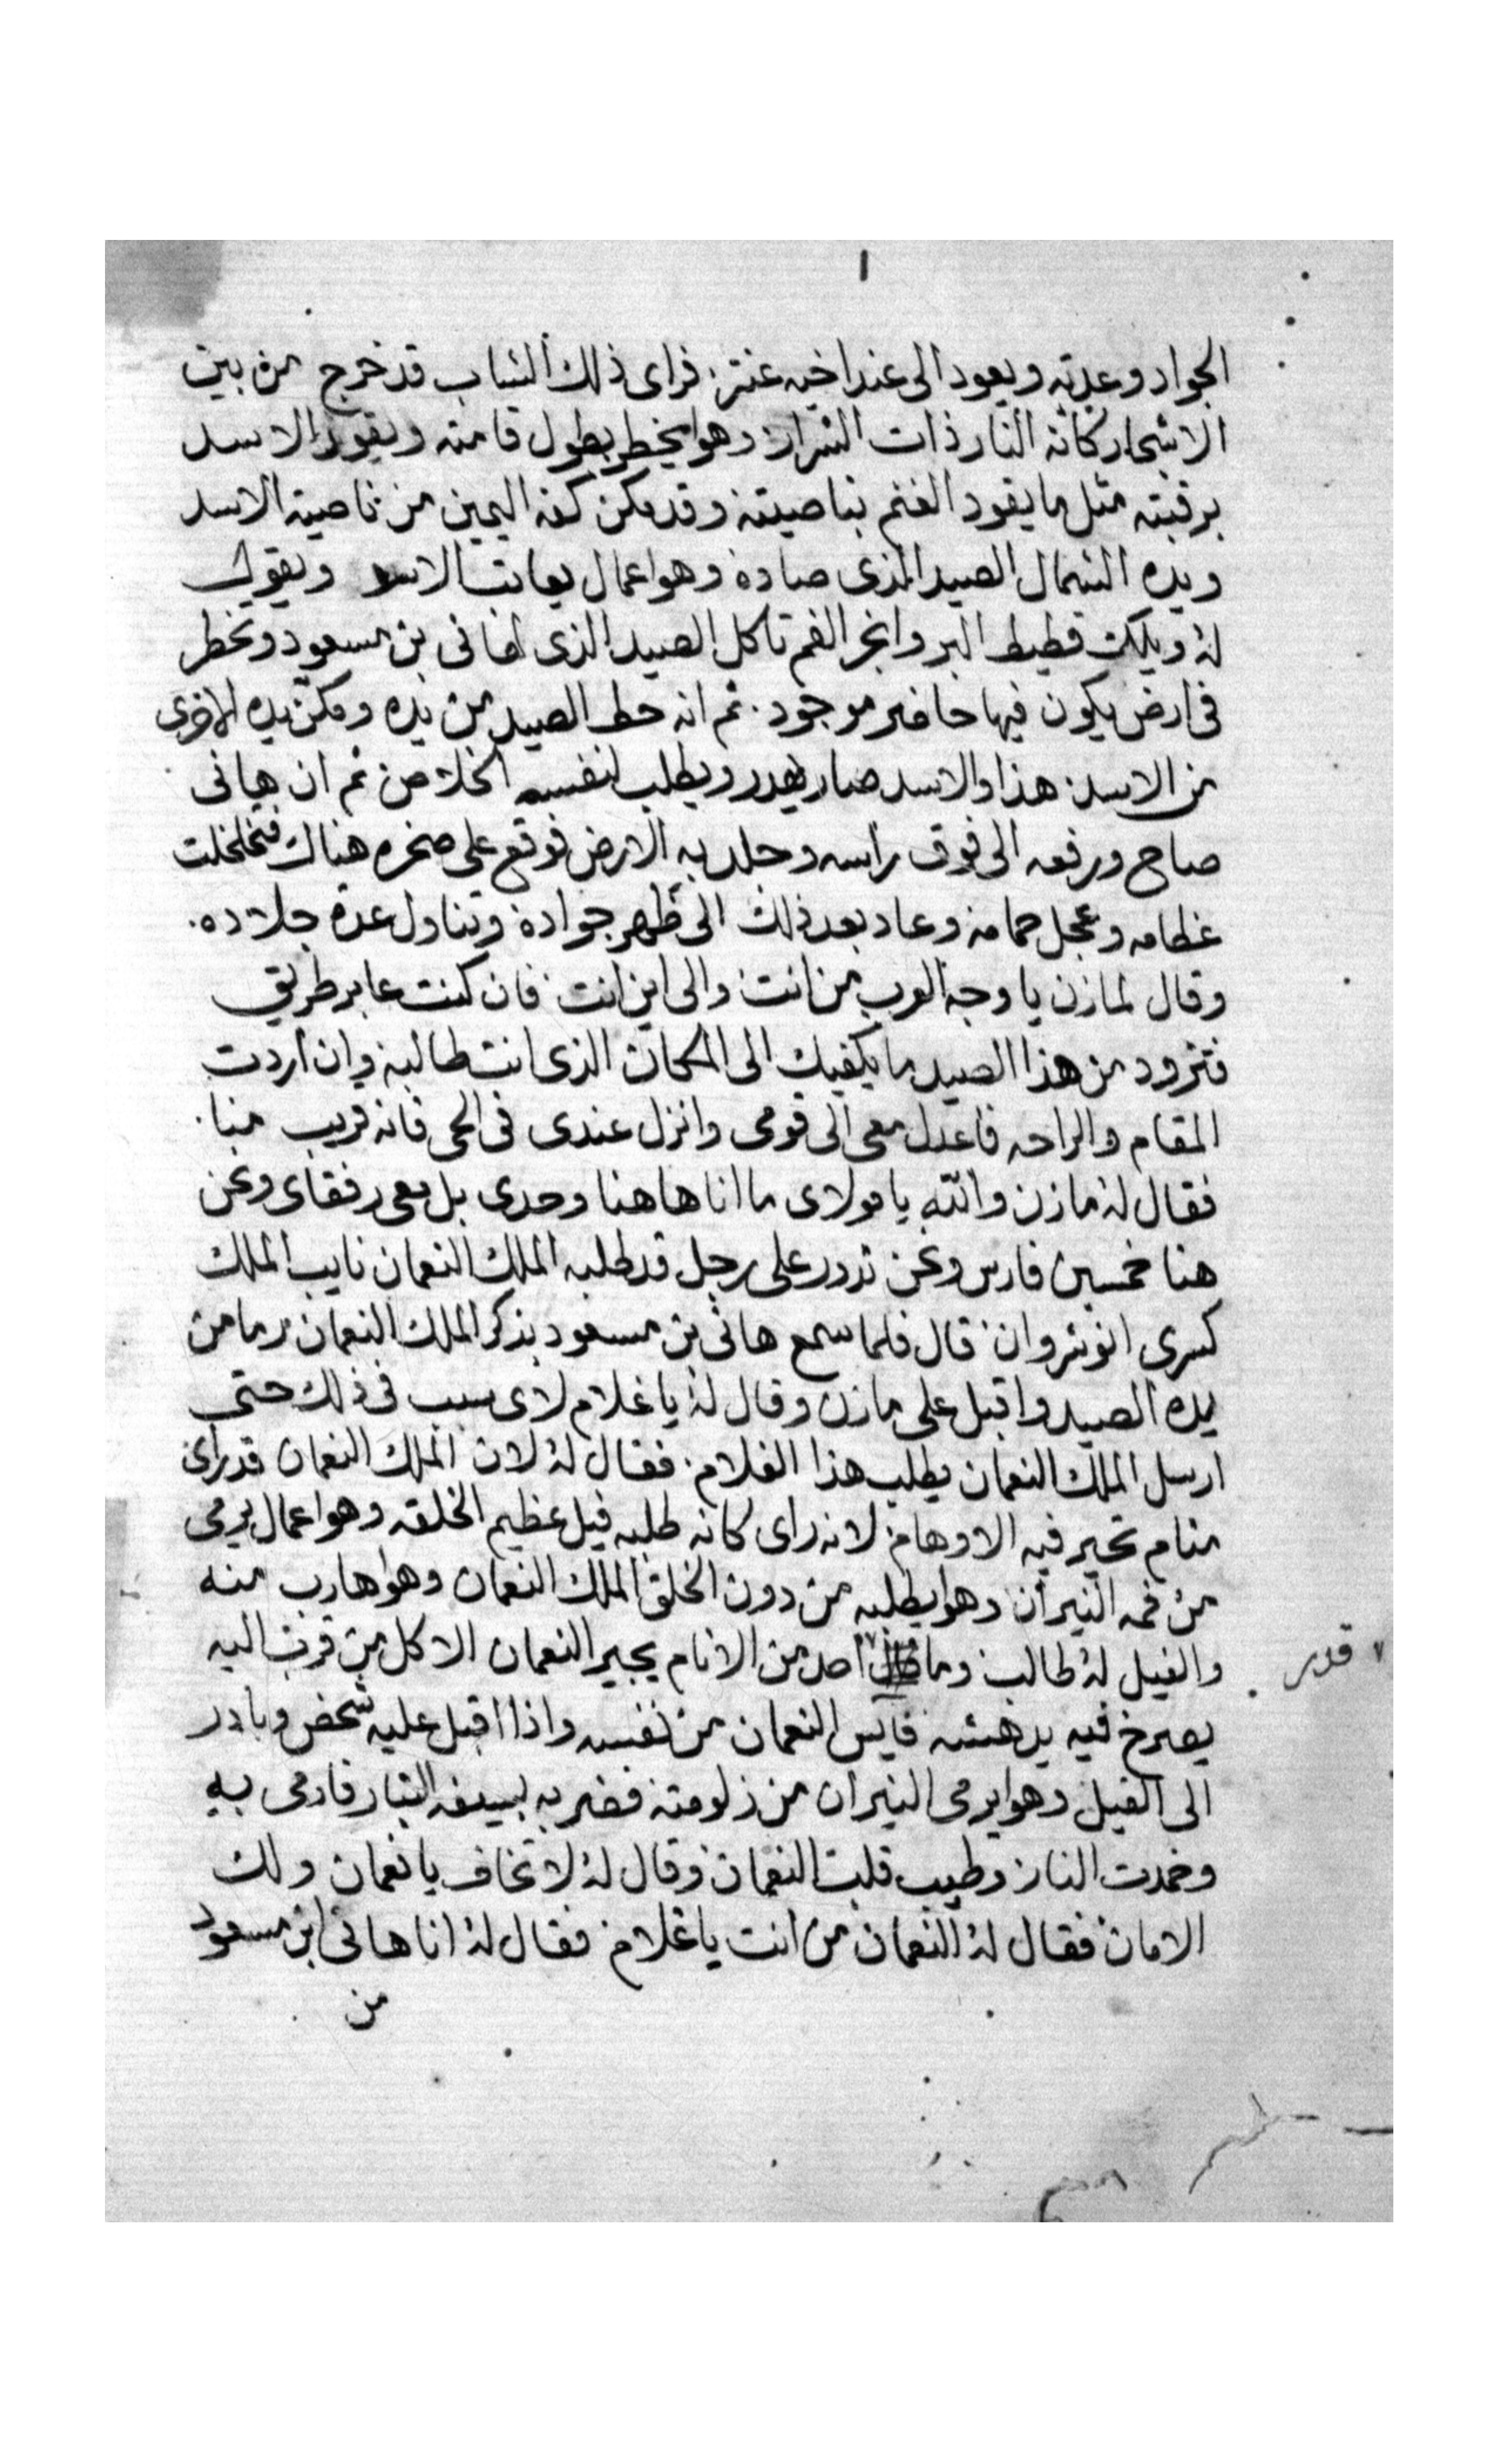 ١
الجواد وعدته ويعود الى عند اخيه عنتر. فراى ذلك الشاب قد خرج من بين
الاشجار كانه النار ذات الشرار: وهوا يخطر بطول قامته ويقود الاسد
برقبته مثل ما يقود الغنم بناصيته وقد مكن كفه اليمين من ناصية الاسد
ويده الشمال الصيد الذى صاده وهوا عمال يعاتب الاسد ويقول
له ويلك قطيط البر وابخر الفم تاكل الصيد الذى لهانى بن مسعود وتخطر
فى ارض يكون فيها حاضر موجود. ثم انه حط الصيد من يده ومكن يده الاخرى
من الاسد: هذا والاسد صار يهدر ويطلب لنفسه الخلاص ثم ان هانى
صاح ورفعه الى فوق راسه وجلد به الارض فوقع على صخره هناك فتخلخلت
عظامه وعجل حمامه وعاد بعد ذلك الى ظهر جواده وتناول عدة جلاده.
وقال لمازن يا وجه العرب من انت والى اين انت فان كنت عابر طريق
فتزود من هذا الصيد ما يكفيك الى المكان الذى انت طالبه وان اردت
المقام والراحه فاعدل معى الى قومى وانزل عندى فى الحى فانه قريب منا.
فقال له مازن والله يا مولاى ما انا هاهنا وحدى بل معى رفقاى ونحن
هنا خمسين فارس ونحن ندور على رجل قد طلبه الملك النعمان نايب الملك
كسرى انوشروان: قال فلما سمع هانى بن مسعود بذكر الملك النعمان رما من
يده الصيد واقبل على مازن وقال له يا غلام لاى سبب فى ذلك حتى
ارسل الملك النعمان يطلب هذا الغلام. فقال له لان الملك النعمان قد راى
منام تحير فيه الاوهام: لانه راى كانه طلبه فيل عظيم الخلقه وهوا عمال يرمى
من فمه النيران وهوا يطلبه من دون الخلق الملك النعمان وهوا هارب منه
والفيل له طالب: وما احد من الانام يجير النعمان الا كل من قرب اليه
٧ قدر
يصرخ فيه يدهشه فايس النعمان من نفسه واذا اقبل عليه شخص وبادر
الى الفيل وهوا يرمى النيران من زلومته فضربه بسيفه البتار فارمى به
وخمدت النار: وطيب قلب النعمان وقال له لا تخاف يا نعمان ولك
الامان فقال له النعمان من انت يا غلام فقال له انا هانى ابن مسعود
من